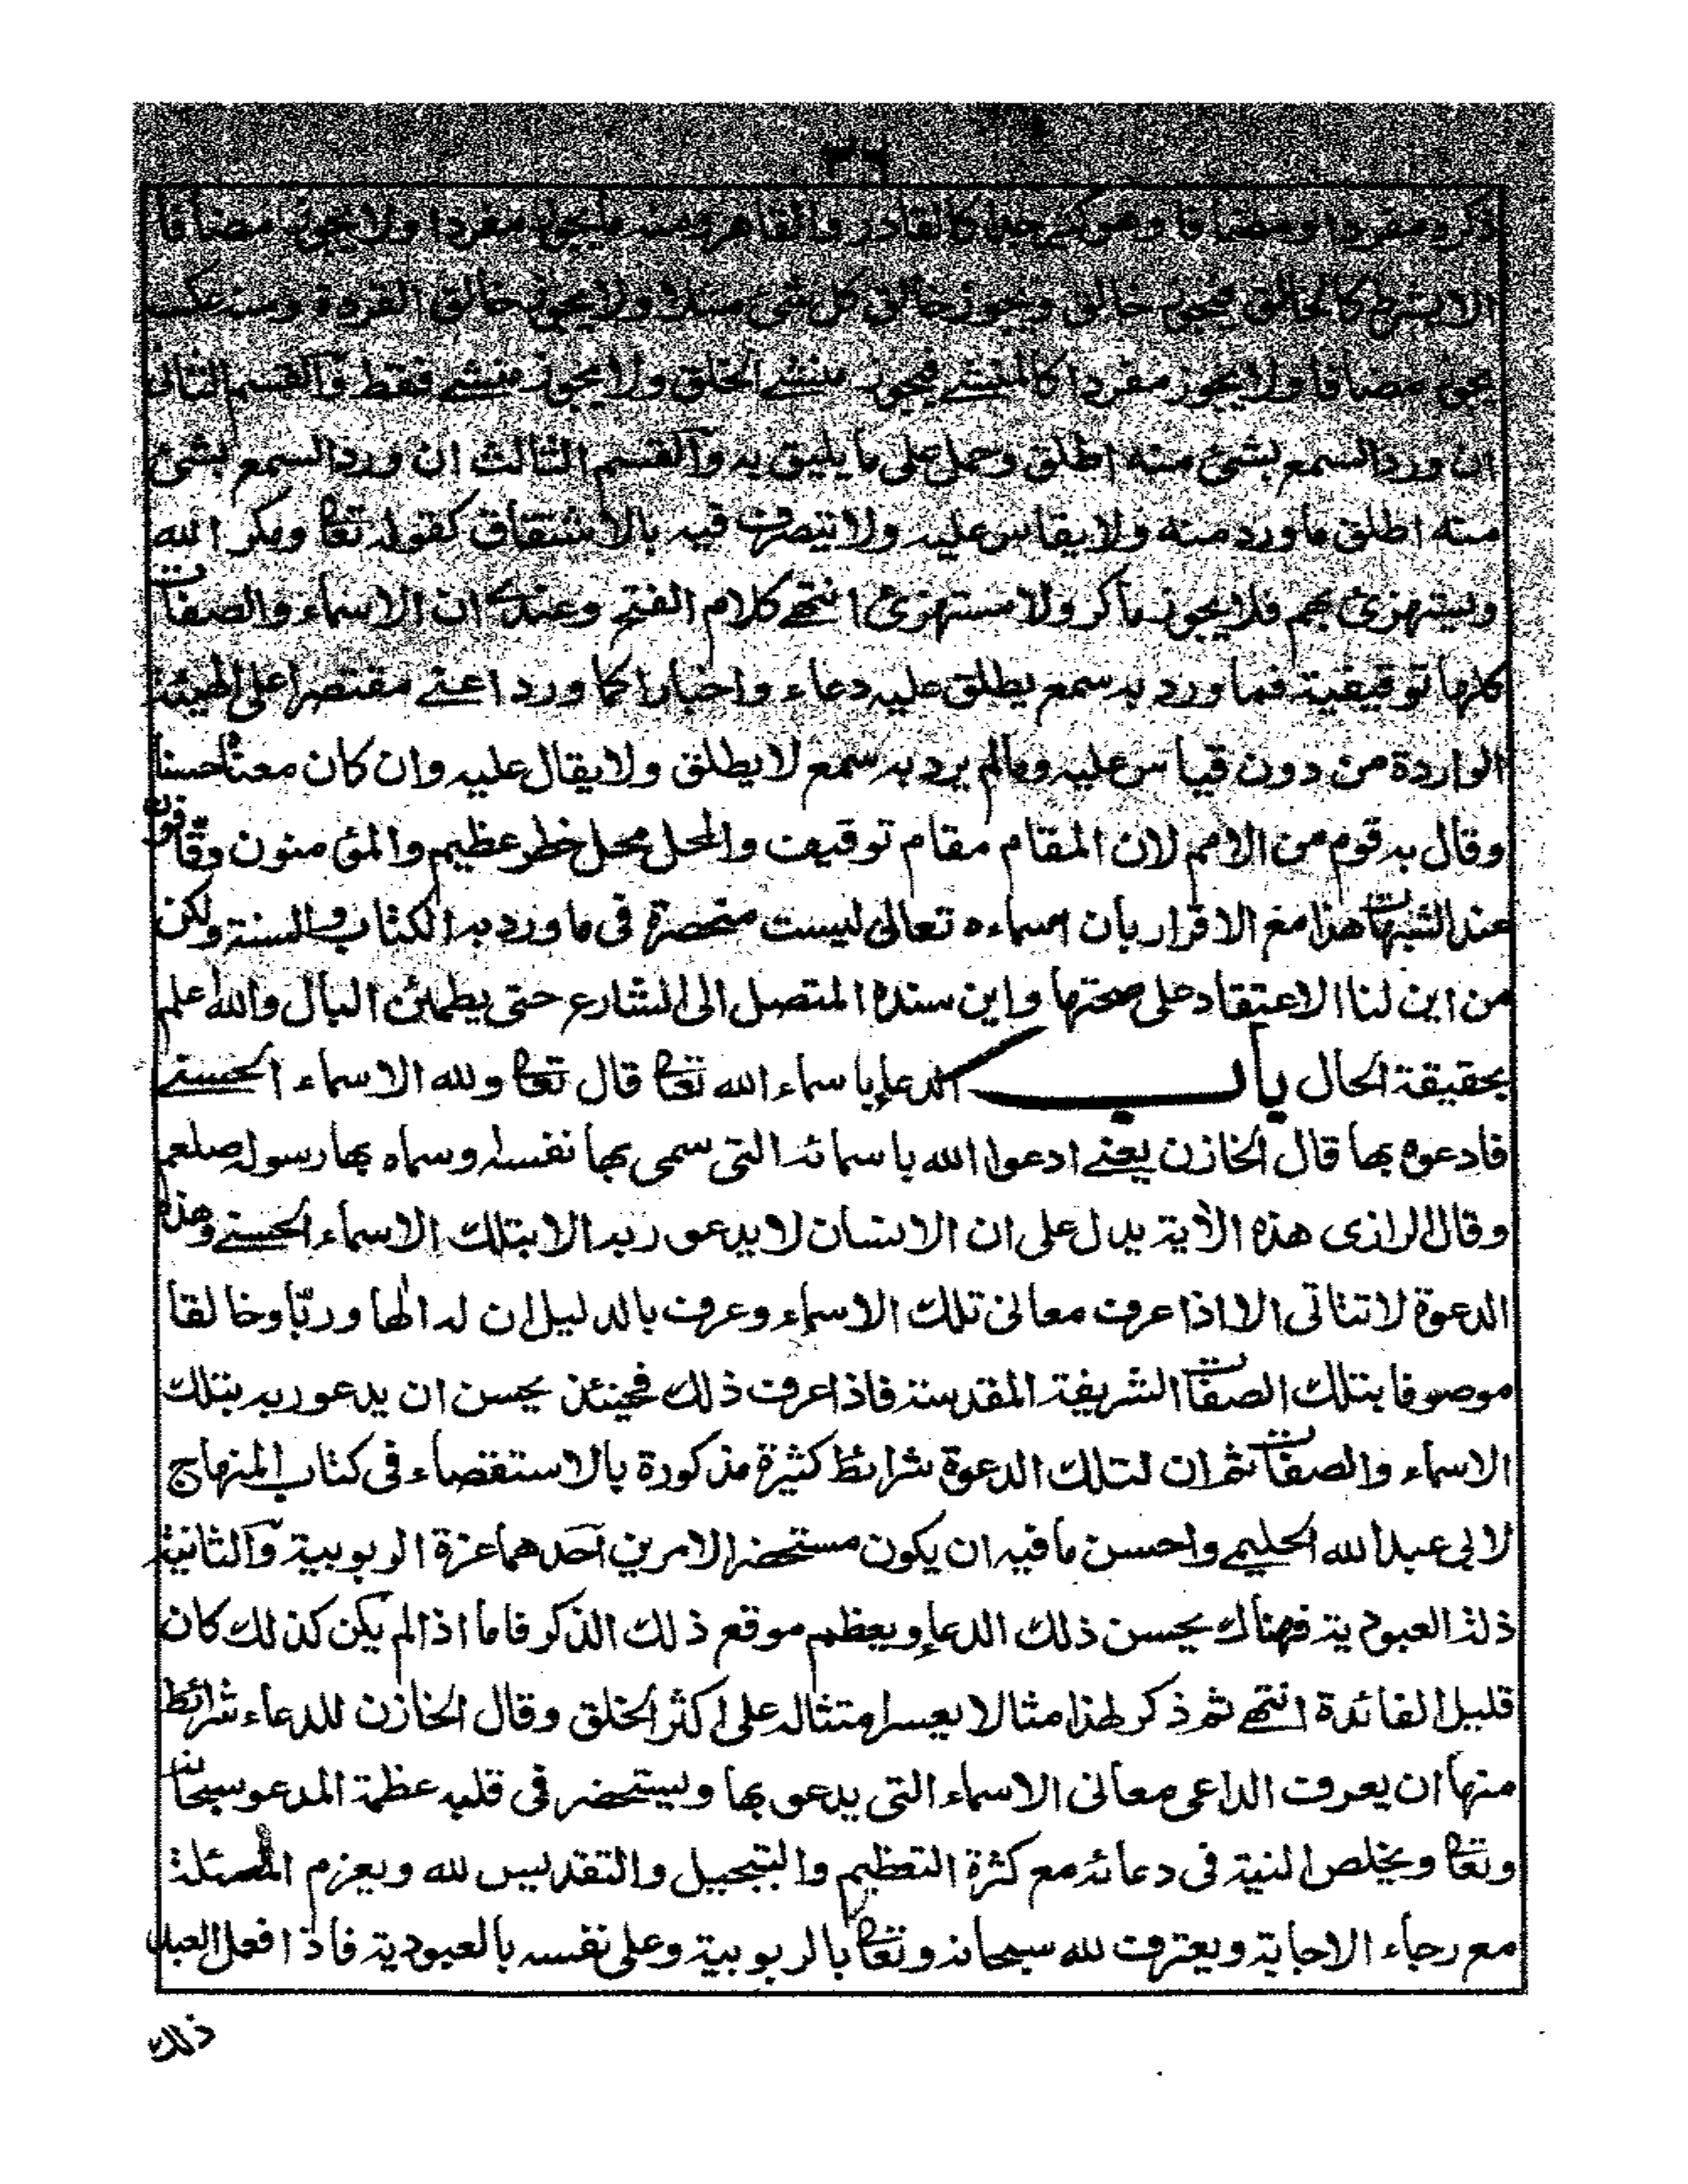 ٣٦
ذكره مفردا ومضافا وهو كثير جدا كالقادر والقاهر ومنه ما يجوز مفردا ولا يجوز مضافا
الا بشرط كالخالق فيجوز خالق ويجوز خالق كل شئ مثلا ولا يجوز خالق القردة ومنه عكسه
يجوز مضافا ولا يجوز مفردا كالمنشئ فيجوز منشئ الخلق ولا يجوز منشئ فقط والقسم الثانى
ان ورد السمع بشئ منه اطلق وحمل على ما يليق به والقسم الثالث ان ورد السمع بشئ
منه اطلق ما ورد منه ولا يقاس عليه ولا يتصرف فيه بالاشتقاق كقوله تعا ويمكر الله
ويستهزئ بهم فلا يجوز ماكر ولا مستهزئ انتهى كلام الفتح وعندى ان الاسماء والصفات
كلها توقيفية فما ورد به سمع يطلق عليه دعاء واخبارا كما ورد اعنى مقتصرا على الهيئة
الواردة من دون قياس عليه ومالم يرد به سمع لا يطلق ولا يقال عليه وان كان معناه حسنا
وقال به قوم من الامم لان المقام مقام توقيف والمحل محل خطر عظيم والمؤمنون وقافون
عند الشبهات هذا مع الاقرار بان اسماءه تعالى ليست منحصرة فى ما ورد به الكتاب والسنة ولكن
من اين لنا الاعتقاد على صحتها واين سنده المتصل الى الشارع حتى يطمئن البال والله اعلم
بحقيقة الحال باب الدعاء باسماء الله تعا قال تعا ولله الاسماء الحسنى
فادعوه بها قال الخازن يعنى ادعوا الله باسمائه التى سمى بها نفسه وسماه بها رسوله صلعم
وقال الرازى هذه الآية يدل على ان الانسان لا يدعو ربه الا بتلك الاسماء الحسنى وهذه
الدعوة لا تتاتى الا اذا عرف معانى تلك الاسماء وعرف بالدليل ان له الها وربّا وخالقا
موصوفا بتلك الصفات الشريفة المقدسة فاذا عرف ذلك فحينئذ يحسن ان يدعو ربه بتلك
الاسماء والصفات ثم ان لتلك الدعوة شرائط كثيرة مذكورة بالاستقصاء فى كتاب المنهاج
لابى عبد الله الحليمى واحسن ما فيه ان يكون مستحضرا لامرين احدهما عزة الربوبية والثانية
ذلة العبودية فهناك يحسن ذلك الدعاء ويعظم موقع ذلك الذكر فاما اذا لم يكن كذلك كان
قليل الفائدة انتهى ثم ذكر لهذا مثالا يعسر امتثاله على اكثر الخلق وقال الخازن للدعاء شرائط
منها ان يعرف الداعى معانى الاسماء التى يدعو بها ويستحضر فى قلبه عظمة المدعو سبحانه
وتعا ويخلص النية فى دعائه مع كثرة التعظيم والتبجيل والتقديس لله ويعزم المسئلة
مع رجاء الاجابة ويعترف لله سبحانه وتعا بالربوبية وعلى نفسه بالعبودية فاذا فعل العبد
ذلك